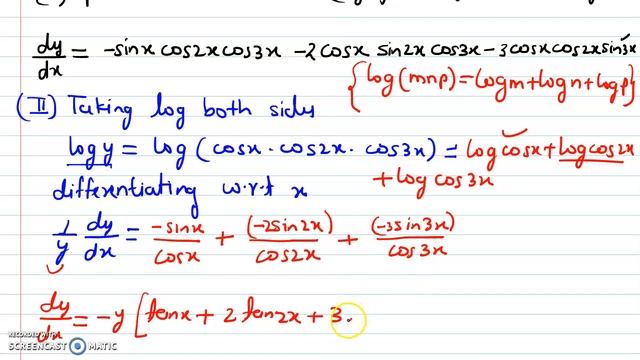 dy/dx = -sinx cos2x cos3x -2cosx sin2x cos3x -3cosx cos2x sin3x
{log(mnp)=logm+logn+logp}
(II) Taking log both sides
log y = log(cosx·cos2x·cos3x) = log cosx + log cos2x
+ log cos3x
differentiating w.r.t x
1/y dy/dx = -sinx/cosx + (-2sin2x)/cos2x + (-3sin3x)/cos3x
dy/dx = -y [tanx + 2 tan2x + 3
RECORDED WITH
SCREENCAST MATIC